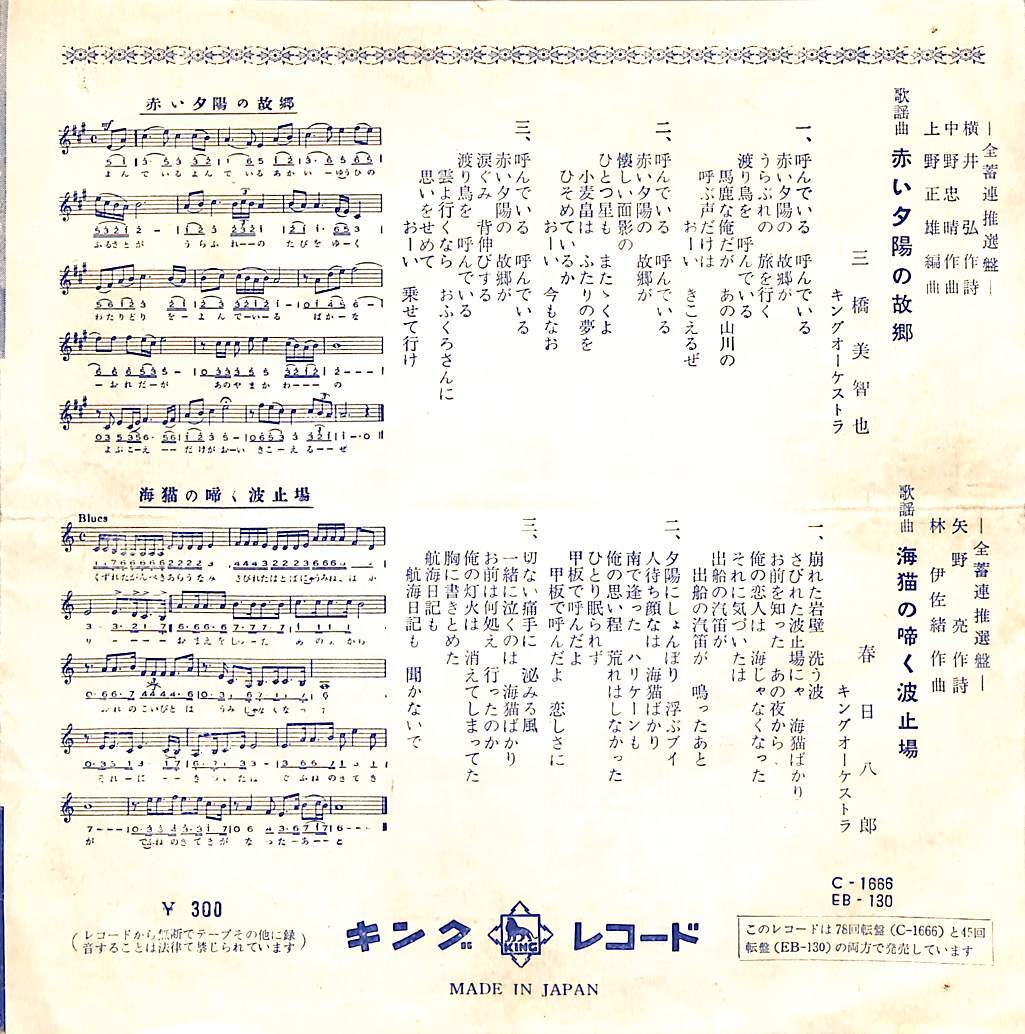 ―全蓄連推選盤―
横井弘作詩
中野忠晴作曲
上野正雄編曲
歌謡曲 赤い夕陽の故郷
三橋美智也
キングオーケストラ
一、呼んでいる 呼んでいる
赤い夕陽の 故郷が
うらぶれの 旅を行く
渡り鳥を 呼んでいる
馬鹿な俺だが あの山川の
呼ぶ声だけは きこえるぜ
おーい
二、呼んでいる 呼んでいる
赤い夕陽の 故郷が
懐しい面影の
ひとつ星も またゝくよ
小麦畠は ふたりの夢を
ひそめているか
おーい 今もなお
三、呼んでいる 呼んでいる
赤い夕陽の 故郷が
涙ぐみ 背伸びする
渡り鳥を 呼んでいる
雲よ行くなら おふくろさんに
思いをせめて
おーい 乗せて行け
赤い夕陽の故郷
mf
よんでいるよんでいるあかいーゆうひの
ふるさとが うらぶれーーの たびをゆーく
わたりどり をーよんでーいーる ばかーな
ーおれだーが あのやまかわーーー の
よぶこーえ ーーだけがおーい きこーえるーーぜ
―全蓄連推選盤―
矢野亮作詩
林伊佐緒作曲
歌謡曲 海猫の啼く波止場
春日八郎
キングオーケストラ
一、崩れた岩壁 洗う波
さびれた波止場にゃ 海猫ばかり
お前を知った あの夜から
俺の恋人は 海じゃなくなった
それに気づいたは
出船の汽笛が
出船の汽笛が 鳴ったあと
二、夕陽にしょんぼり 浮ぶブイ
人待ち顔なは 海猫ばかり
南で逢った ハリケーンも
俺の思い程 荒れはしなかった
ひとり眠られず
甲板で呼んだよ
甲板で呼んだよ 恋しさに
三、切ない痛手に 泌みる風
一緒に泣くのは 海猫ばかり
お前は何処え 行ったのか
俺の灯火は 消えてしまってた
胸に書きとめた
航海日記も
航海日記も 聞かないで
海猫の啼く波止場
Blues
くずれたがんぺきあらうなみ さびれたはとばにゃうみねこばか
りーーーー おまえをしーった ーあのよーから
おれのこいびと は うみじゃなくなって
それーに ーーきづいたは でふねのきてき
が でふねのきてきが なったーあーーと
¥ 300
(レコードから無断でテープその他に録
音することは法律で禁じられています)
キング KING レコード
MADE IN JAPAN
C-1666
EB-130
このレコードは78回転盤(C-1666)と45回
転盤(EB-130)の両方で発売しています